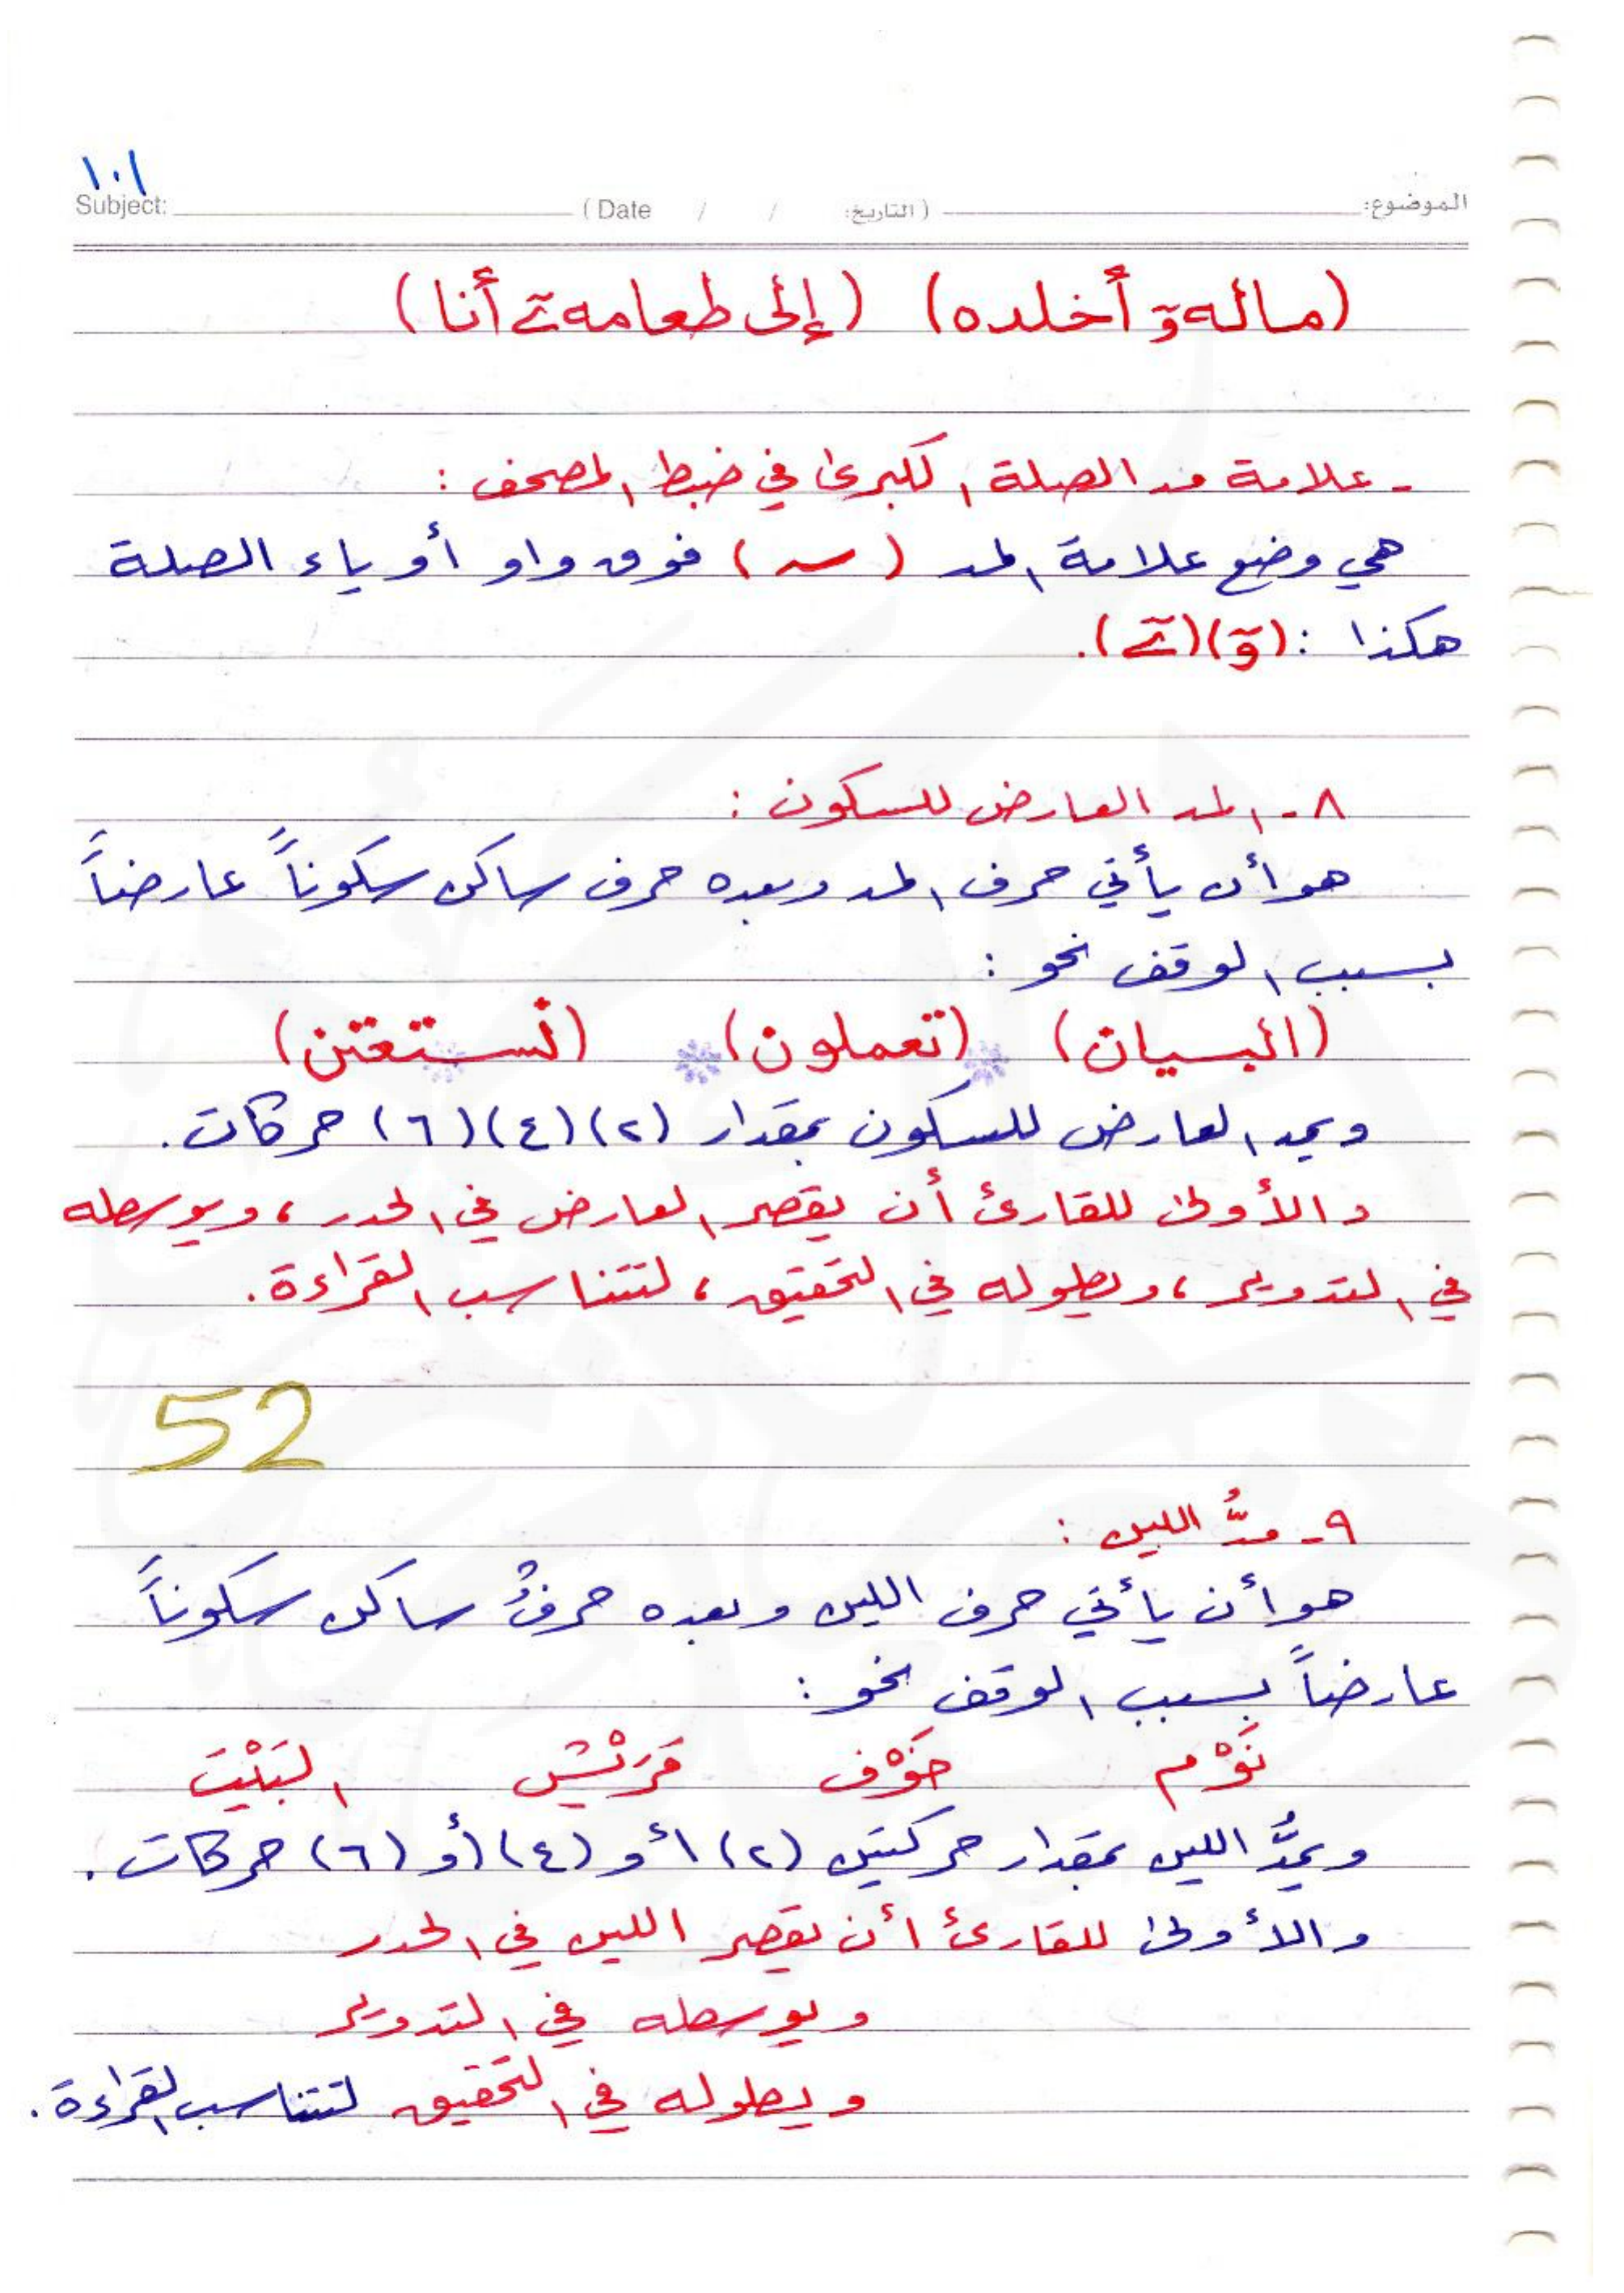 ١٠١
Subject: (Date / / التاريخ) الموضوع:
(مالهۥٓ أخلده) (إلى طعامهۦٓ أنا)
- علامة مد الصلة الكبرى في ضبط المصحف :
هي وضع علامة المد ( ~ ) فوق واو أو ياء الصلة
هكذا : (ۥٓ) (ۦٓ).
٨ - المد العارض للسكون :
هو أن يأتي حرف المد وبعده حرف ساكن سكوناً عارضاً
بسبب الوقف نحو :
(البيان) (تعملون) (نستعين)
ويمد العارض للسكون بمقدار (٢) (٤) (٦) حركات.
والأولى للقارئ أن يقصر العارض في الحدر ، ويوسطه
في التدوير ، ويطوله في التحقيق ، لتتناسب القراءة.
52
٩ - مدُّ اللين :
هو أن يأتي حرف اللين وبعده حرفٌ ساكن سكوناً
عارضاً بسبب الوقف نحو :
نَوْم خَوْف قُرَيْش البَيْت
ويمدُّ اللين بمقدار حركتين (٢) أو (٤) أو (٦) حركات.
والأولى للقارئ أن يقصر اللين في الحدر
ويوسطه في التدوير
ويطوله في التحقيق لتتناسب القراءة.